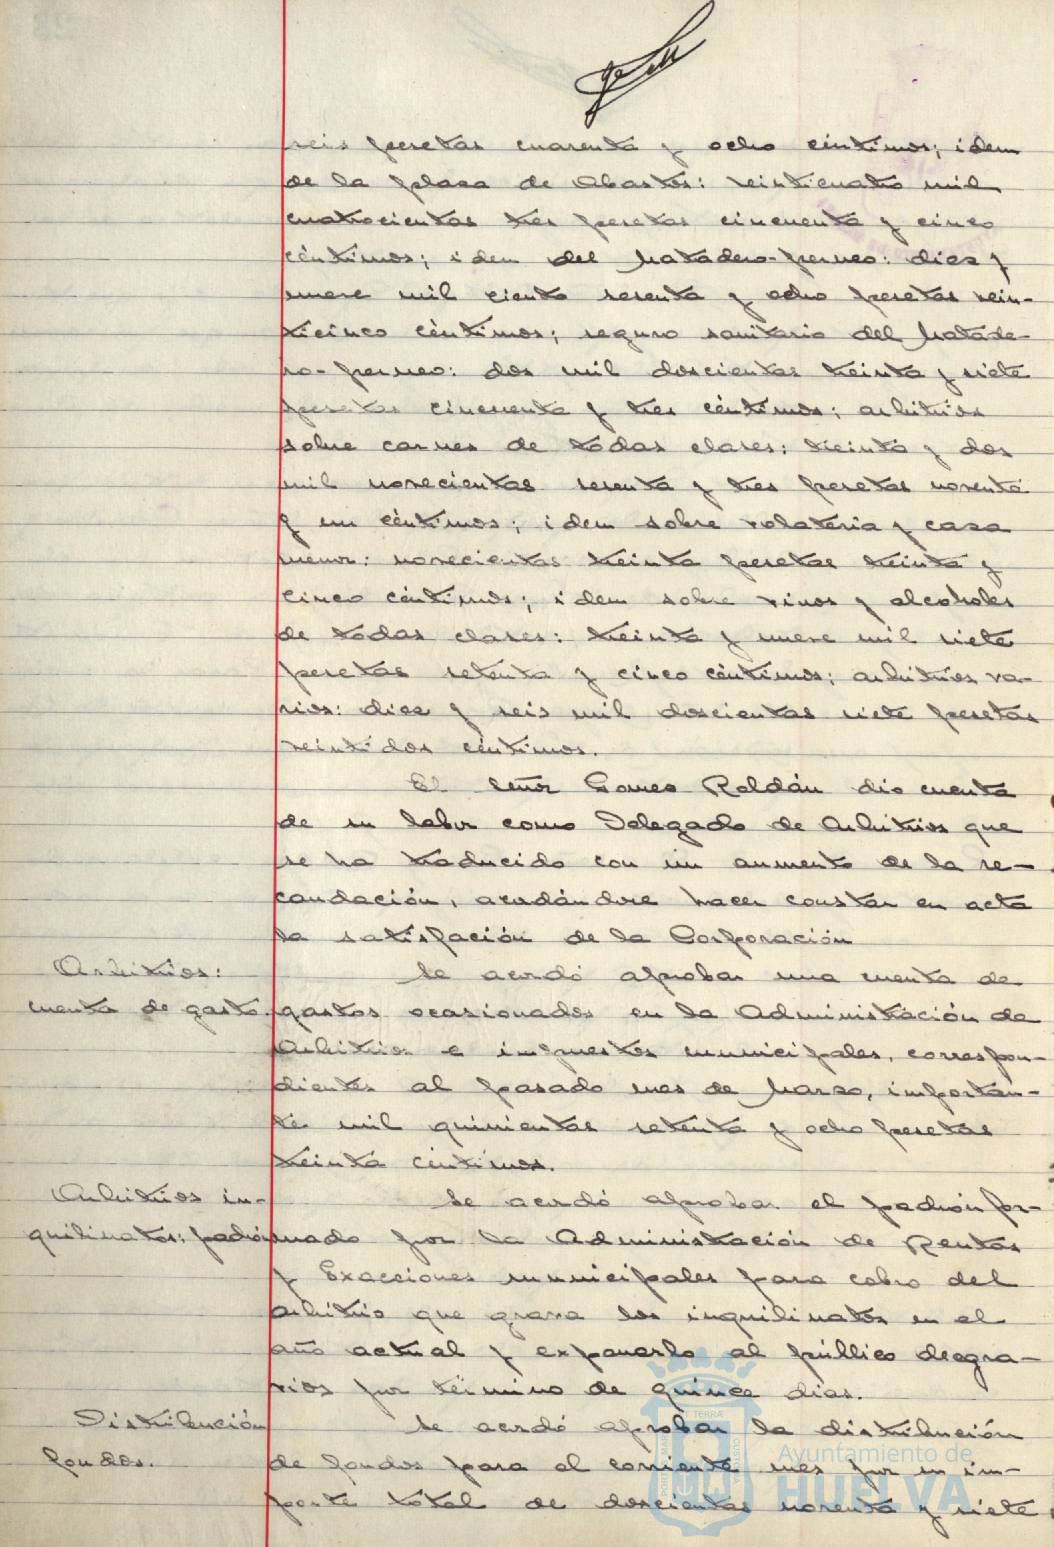 seis pesetas cuarenta y ocho céntimos; idem
de la plaza de Abastos: veinticuatro mil
cuatrocientas tres pesetas cincuenta y cinco
céntimos; idem del Matadero-porcuno: diez y
nueve mil ciento sesenta y ocho pesetas vein-
ticinco céntimos; seguro sanitario del Matade-
ro- : dos mil doscientas treinta y siete
pesetas cincuenta y tres céntimos; arbitrios
sobre carnes de todas clases: treinta y dos
mil novecientas sesenta y tres pesetas noventa
y un céntimos; idem sobre volateria y caza
menor: novecientas treinta pesetas treinta y
cinco céntimos; idem sobre vinos y alcoholes
de todas clases: treinta y nueve mil siete
pesetas setenta y cinco céntimos; arbitrios va-
rios: diez y seis mil doscientas siete pesetas
veintidos céntimos.
El señor Gomez Roldán dió cuenta
de su labor como Delegado de Arbitrios que
se ha traducido con un aumento de la re-
caudación, acordándose hacer constar en acta
la satisfación de la Corporación
Arbitrios:
cuenta de gasto.
Se acordó aprobar una cuenta de
gastos ocasionados en la Administración de
Arbitrios e impuestos municipales, correspon-
dientes al pasado mes de Marzo, importan-
te mil quinientas setenta y ocho pesetas
treinta céntimos.
Arbitrios in-
quilinatos: padrón
Se acordó aprobar el padrón for-
mado por la Administración de Rentas
y Exacciones municipales para cobro del
arbitrio que grava los inquilinatos en el
año actual y exponerlo al público diez
por término de quince dias.
Distribución
fondos.
Se acordó aprobar la distribución
de fondos para el corriente mes por un im-
porte total de doscientas noventa y siete
Ayuntamiento de
HUELVA